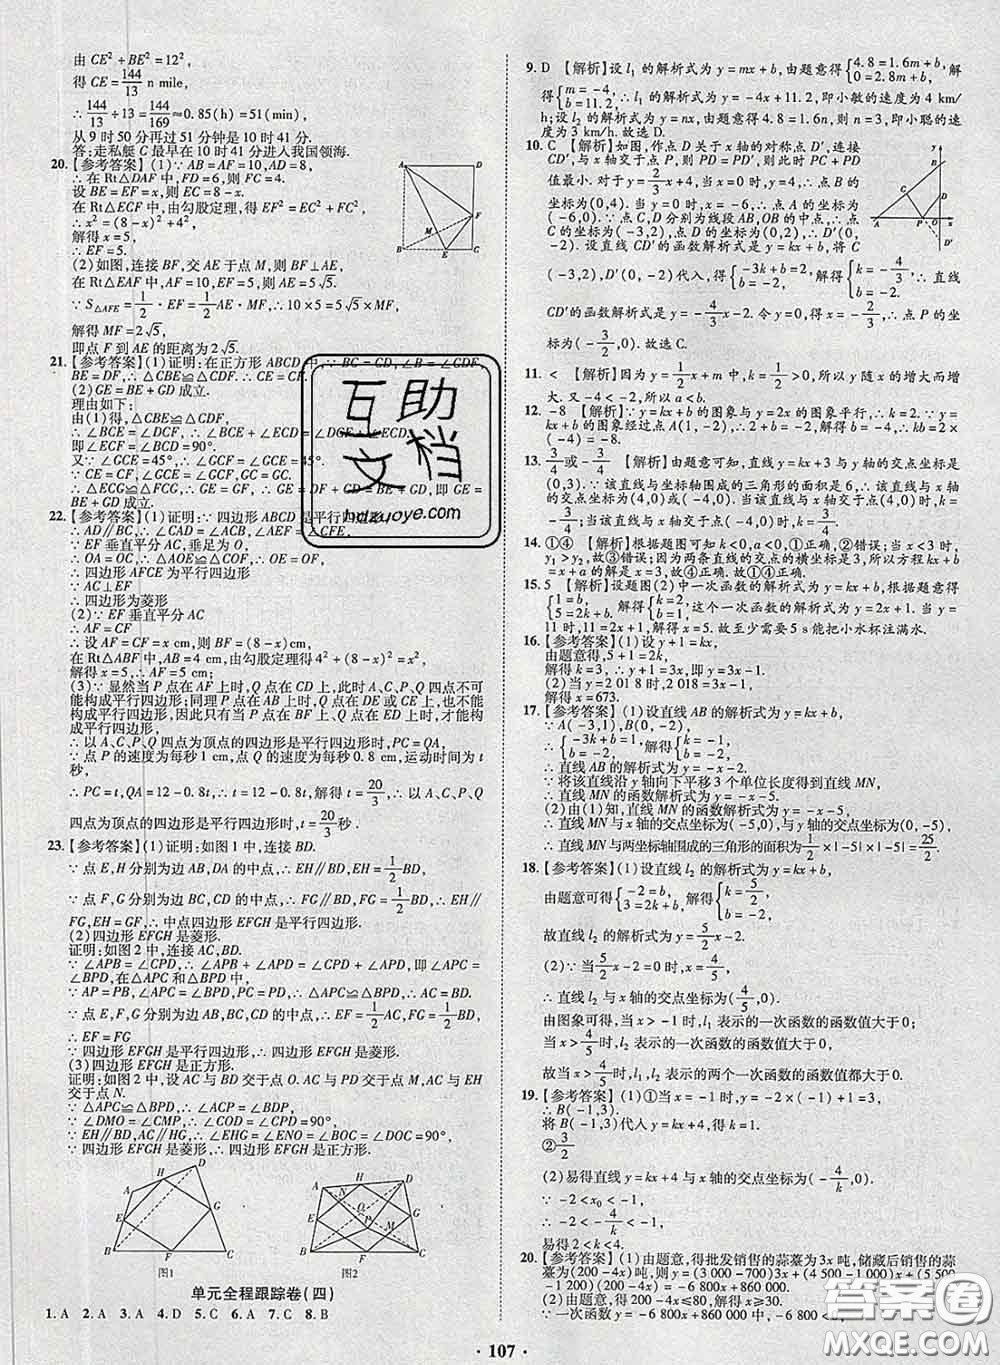 由 CE²+BE²=12²,
得 CE=144/13 n mile,
∴144/13÷13=144/169≈0.85(h)=51(min),
从 9 时 50 分再过 51 分钟是 10 时 41 分.
答:走私艇 C 最早在 10 时 41 分进入我国领海.
20.【参考答案】(1)∵AB=AF=10,AD=8,
∴在 Rt△DAF 中,FD=6,则 FC=4.
在 BC 上,设 EF=x,则 EC=8-x.
在 Rt△ECF 中,由勾股定理,得 EF²=EC²+FC²,
∴x²=(8-x)²+4²,
解得 x=5,
∴EF=5.
(2)如图,连接 BF,交 AE 于点 M,则 BF⊥AE,
在 Rt△EAF 中,AF=10,EF=5,则 AE=5√5.
∵S△AFE=1/2·EF=1/2AE·MF,∴10×5=5√5×MF,
解得 MF=2√5,
即点 F 到 AE 的距离为 2√5.
21.【参考答案】(1)证明:在正方形 ABCD 中,∵BC=CD,∠B=∠CDF,
BE=DF,∴△CBE≌△CDF.∴CE=CF.
(2)GE=BE+GD 成立.
理由如下:
由(1)得,△CBE≌△CDF,
∴∠BCE=∠DCF,∴∠BCE+∠ECD=∠DCF+∠ECD,
即∠ECF=∠BCD=90°.
又∵∠GCE=45°,∴∠GCF=∠GCE=45°.
∵CE=CF,∠GCE=∠GCF,GC=GC.
∴△ECG≌△FCG.∴GE=GF.∴GE=DF+GD=BE+GD,即 GE=
BE+GD 成立.
22.【参考答案】(1)证明:∵四边形 ABCD 是平行四边形,
∴AD∥BC,∴∠CAD=∠ACB,∠AEF=∠CFE,
∵EF 垂直平分 AC,垂足为 O,
∴OA=OC,∴△AOE≌△COF,∴OE=OF,
∴四边形 AFCE 为平行四边形
∵AC⊥EF
∴四边形为菱形
(2)∵EF 垂直平分 AC
∴AF=CF
∴设 AF=CF=x cm,则 BF=(8-x)cm,
在 Rt△ABF 中,AB=4 cm,由勾股定理得 4²+(8-x)²=x²,
解得 x=5,∴AF=5(cm)
(3)∵显然当 P 点在 AF 上时,Q 点在 CD 上,此时 A、C、P、Q 四点不可能
构成平行四边形;同理 P 点在 AB 上时,Q 点在 DE 或 CE 上,也不能
构成平行四边形.因此只有当 P 点在 BF 上、Q 点在 ED 上时,才能构
成平行四边形,
∴以 A、C、P、Q 四点为顶点的四边形是平行四边形时,PC=QA,
∵点 P 的速度为每秒 1 cm,点 Q 的速度为每秒 0.8 cm,运动时间为 t
秒,
∴PC=t,QA=12-0.8t,∴t=12-0.8t,解得 t=20/3,∴以 A、C、P、Q
四点为顶点的四边形是平行四边形时,t=20/3秒.
23.【参考答案】(1)证明:如图 1 中,连接 BD.
∵点 E,H 分别为边 AB,DA 的中点,∴EH∥BD,EH=1/2BD,
∵点 F,G 分别为边 BC,CD 的中点,∴FG∥BD,FG=1/2BD,∴EH∥
FG,EH=GF,∴中点四边形 EFGH 是平行四边形.
(2)四边形 EFGH 是菱形.
证明:如图 2 中,连接 AC,BD.
∵∠APB=∠CPD,∴∠APB+∠APD=∠CPD+∠APD,即∠APC=
∠BPD,在△APC 和△BPD 中,
∵AP=PB,∠APC=∠BPD,PC=PD,∴△APC≌△BPD,∴AC=BD.
∵点 E,F,G 分别为边 AB,BC,CD 的中点,∴EF=1/2AC,FG=1/2BD,
∴EF=FG
∵四边形 EFGH 是平行四边形,∴四边形 EFGH 是菱形.
(3)四边形 EFGH 是正方形.
证明:如图 2 中,设 AC 与 BD 交于点 O.AC 与 PD 交于点 M,AC 与 EH 交
于点 N.
∵△APC≌△BPD,∴∠ACP=∠BDP,
∵∠DMO=∠CMP,∴∠COD=∠CPD=90°,
∵EH∥BD,AC∥HG,∴∠EHG=∠ENO=∠BOC=∠DOC=90°,
∵四边形 EFGH 是菱形,∴四边形 EFGH 是正方形.
图1 图2
单元全程跟踪卷(四)
1. A 2. A 3. A 4. D 5. C 6. A 7. C 8. B
9. D 【解析】设 l₁ 的解析式为 y=mx+b,由题意得{4.8=1.6m+b, 0=2.8m+b, 解
得{m=-4, b=11.2,∴l₁ 的解析式为 y=-4x+11.2,即小敏的速度为 4 km/
h;设 l₂ 的解析式为 y=nx,由题意得 4.8=1.6n,则 n=3,即小聪的速度
为 3 km/h.故选 D.
10. C 【解析】如图,作点 D 关于 x 轴的对称点 D′,连接
CD′,与 x 轴交于点 P,则 PD=PD′,则此时 PC+PD
值最小.对于 y=2/3x+4,当 x=0 时,y=4,∴点 B 的坐标
为(0,4).当 y=0 时,x=-6,∴点 A 的坐标为
(-6,0).∵点 C,D 分别为线段 AB,OB 的中点,∴点
C、D 的坐标为(-3,2)、(0,2),∴点 D′的坐标为(0,
-2).设直线 CD′的函数解析式为 y=kx+b,将 C
(-3,2),D′(0,-2)代入,得{-3k+b=2, b=-2, 解得{k=-4/3, b=-2,∴直线
CD′的函数解析式为 y=-4/3x-2.令 y=0,得 x=-3/2,∴点 P 的坐
标为(-3/2,0).故选 C.
11. < 【解析】因为 y=1/2x+m 中,k=1/2>0,所以 y 随 x 的增大而增
大.又 -4<-1,所以 a<b.
12. -8 【解析】∵y=kx+b 的图象与 y=2x 的图象平行,∴k=2.∵y=
kx+b 的图象经过点 A(1,-2),∴2+b=-2,解得 b=-4,∴kb=2×
(-4)=-8.
13. 3/4或-3/4 【解析】由题意可知,直线 y=kx+3 与 y 轴的交点坐标是
(0,3).∵该直线与坐标轴围成的三角形的面积是 6,∴该直线与 x
轴的交点坐标是(4,0)或(-4,0).当该直线与 x 轴交点是(4,0)时,k=
-3/4;当该直线与 x 轴交点是(-4,0)时,k=3/4.
14. ①④ 【解析】根据题图可知 k<0,a<0,①正确,②错误;当 x<3 时,
y₁>y₂,故③错误;因为两条直线的交点的横坐标是 3,所以方程 kx+b
=x+a 的解是 x=3,故④正确.故①④正确.
15. 5 【解析】设题图(2)中一次函数的解析式为 y=kx+b,根据题意得
{1=b, 5=2k+b. 解得{k=2, b=1,这个一次函数的解析式为 y=2x+1.当 y=
11 时,11=2x+1,解得 x=5.故至少需要 5 s 能把小水标注满水.
16.【参考答案】(1)设 y+1=kx,
由题意得,5+1=2k,
解得 k=3.∴y+1=3x,即 y=3x-1.
(2)当 y=2 018 时,2 018=3x-1,
解得 x=673.
17.【参考答案】(1)设直线 AB 的解析式为 y=kx+b,
∵A(-3,1),B(0,-2),
∴{-3k+b=1, b=-2, 解得{k=-1, b=-2,
∴直线 AB 的解析式为 y=-x-2.
∵将该直线沿 y 轴向下平移 3 个单位长度得到直线 MN,
∴直线 MN 的函数解析式为 y=-x-5.
(2)由(1)知,直线 MN 的函数解析式为 y=-x-5,
∴直线 MN 与 x 轴的交点坐标为(-5,0),与 y 轴的交点坐标为(0,-5),
∴直线 MN 与两坐标轴围成的三角形的面积为1/2×|-5|×|-5|=25/2.
18.【参考答案】(1)设直线 l₂ 的解析式为 y=kx+b,
由题意可得{-2=b, 3=2k+b,解得{k=5/2, b=-2,
故直线 l₂ 的解析式为 y=5/2x-2.
(2)∵当5/2x-2=0 时,x=4/5,
∴直线 l₂ 与 x 轴的交点坐标为(4/5,0).
由图象可得,当 x>-1 时,l₁ 表示的一次函数的函数值大于 0;
当 x>4/5时,l₂ 表示的一次函数的函数值大于 0,
故当 x>4/5时,l₁,l₂ 表示的两个一次函数的函数值都大于 0.
19.【参考答案】(1)①当 x=-1 时,y=-2×(-1)+1=3,
∴B(-1,3).
将 B(-1,3)代入 y=kx+4,得 k=1.
②3/2
(2)易得直线 y=kx+4 与 x 轴的交点坐标为(-4/k,0),
∵-2<x₀<-1,
∴-2<-4/k<-1,
易得 2<k<4.
20.【参考答案】(1)由题意,得批发销售的蒜薹为 3x 吨,储藏后销售的蒜
薹为(200-4x)吨,则 y=3x·(3 000-700)+x·(4 500-1 000)+(5 500
-1 500)(200-4x)=-6 800x+800 000.
(2)由题意得 200-4x≤80,解得 x≥30.
∵一次函数 y=-6 800x+860 000 中,-6 800<0,
107
互助文档
hdzuoye.com
答案圈
MXQE.COM